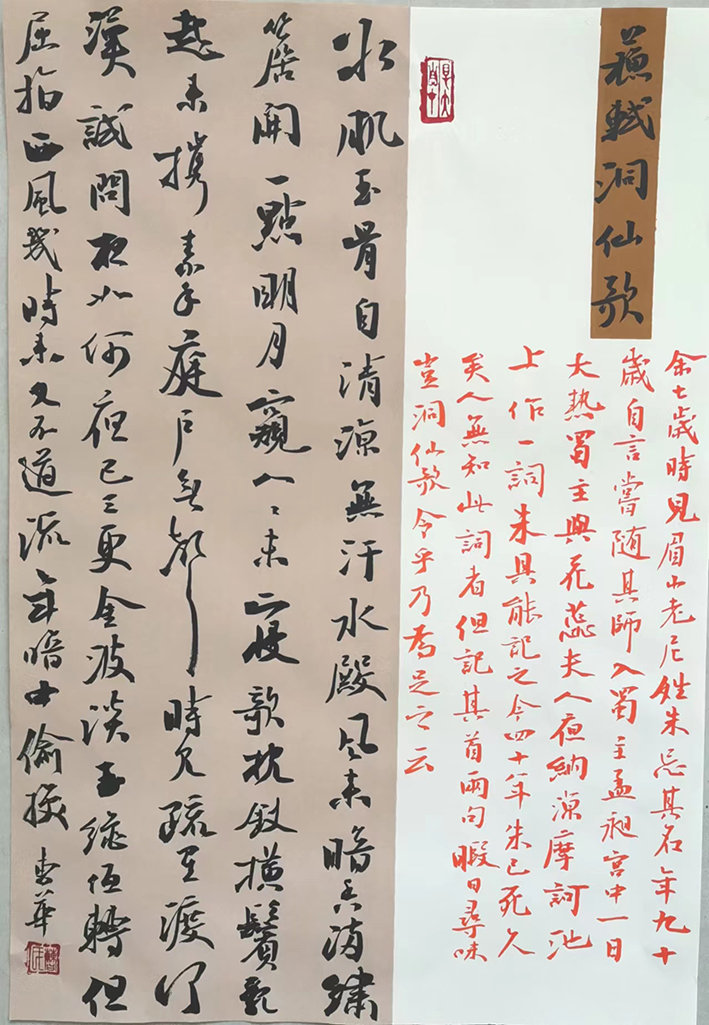 蘇軾洞仙歌
余七歲時見眉山老尼姓朱忘其名年九十
歲自言嘗随其師入蜀主孟昶宫中一日
大熱蜀主與花蕊夫人夜納涼摩訶池
上作一詞朱具能記之今四十年朱已死久
矣人無知此詞者但記其首兩句暇日尋味
豈洞仙歌令乎乃為足之云
冰肌玉骨自清涼無汗水殿風來暗香滿繡
簾開一點明月窺人人未寢欹枕釵橫鬢亂
起來攜素手庭户無聲時見疏星渡河
漢試問夜如何夜已三更金波淡玉繩低轉但
屈指西風幾時來又不道流年暗中偷換